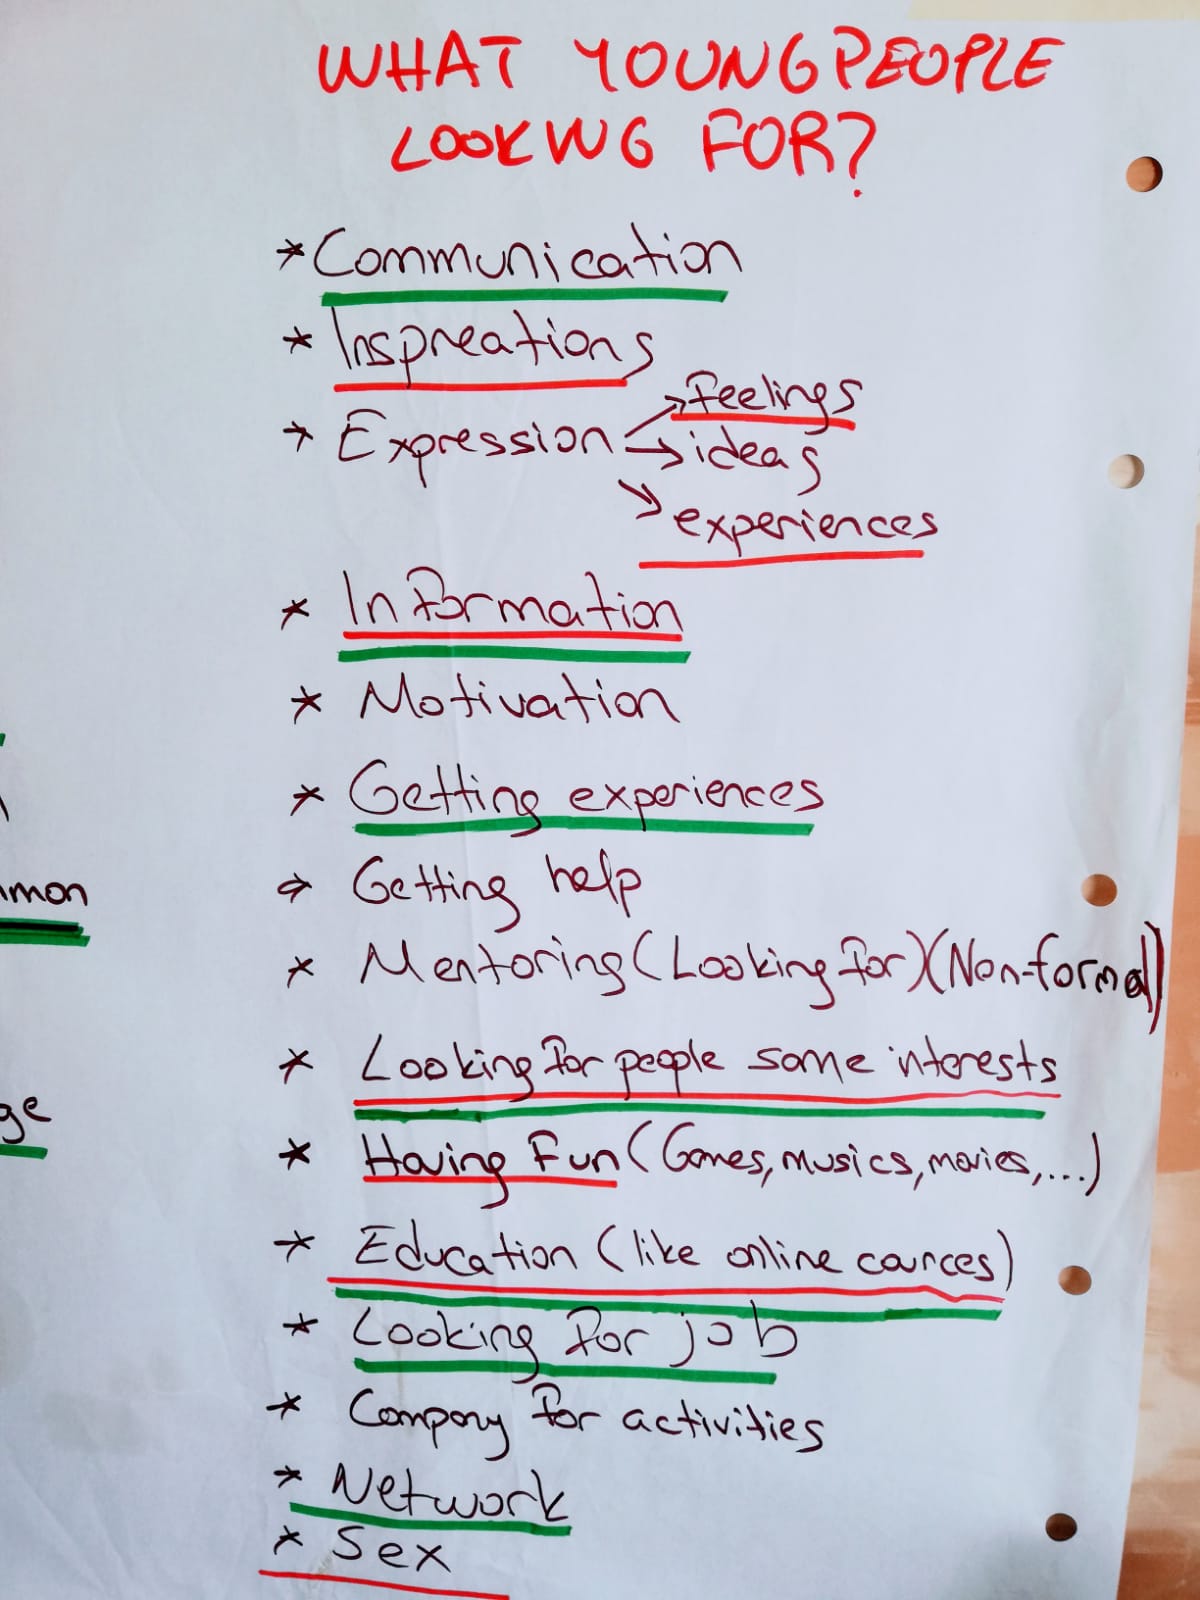 WHAT YOUNG PEOPLE
LOOKING FOR?
* Communication
* Inspreations
* Expression → Feelings
→ ideas
→ experiences
* Information
* Motivation
* Getting experiences
* Getting help
* Mentoring (Looking for) (Non-formal)
* Looking for people same interests
* Having Fun (Games, musics, movies, ...)
* Education (like online cources)
* Looking for job
* Company for activities
* Network
* Sex